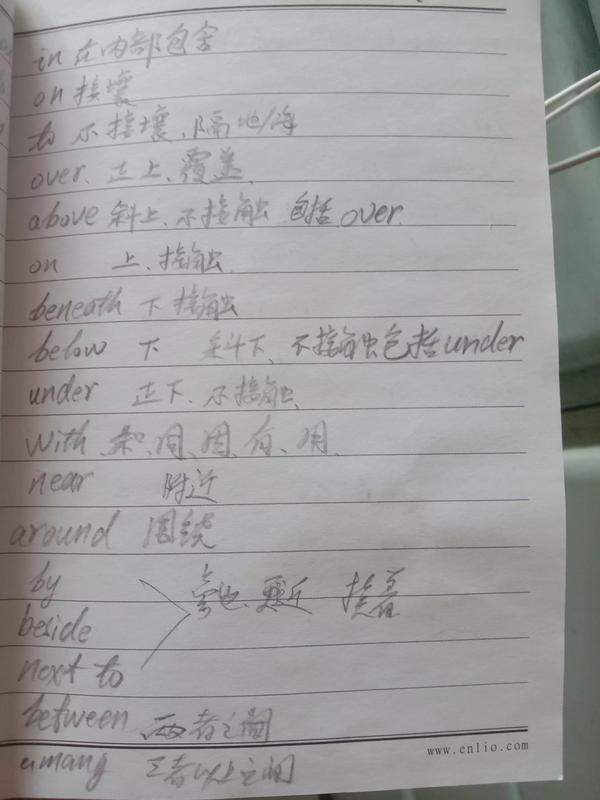 in 在内部包含
on 接壤
to 不接壤、隔地/海
over、正上、覆盖
above 斜上、不接触 包括 over
on 上、接触
beneath 下 接触
below 下 斜下、不接触包括under
under 正下、不接触
with 和、同、因、有、用、
near 附近
around 周绕
by
更近 挨着
beside
next to
between 两者之间
www.enlio.com
amang 三者以上之间